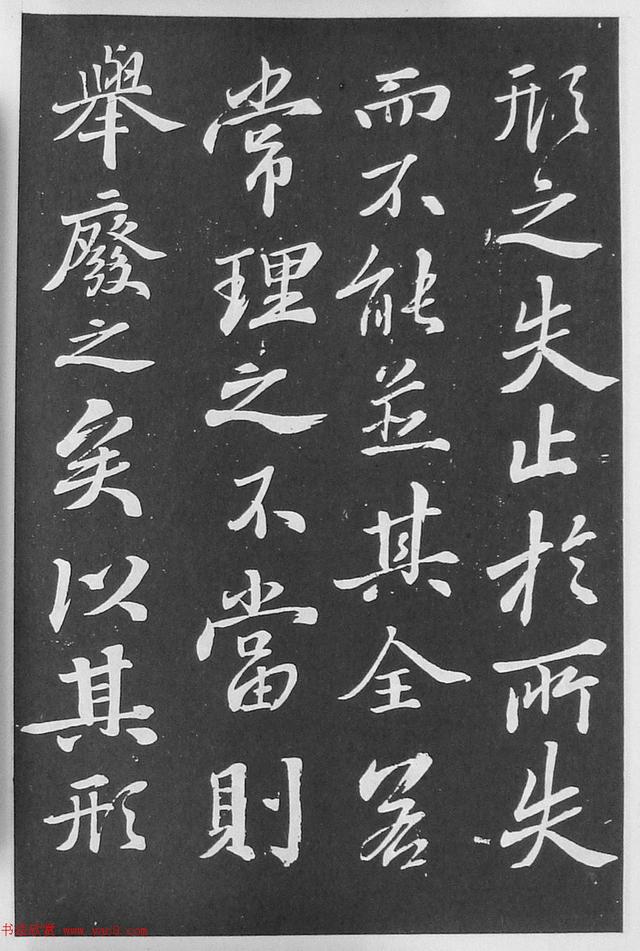 形之失止於所失
而不能並其全若
常理之不當則
舉廢之矣以其形
书法欣赏 www.yac8.com